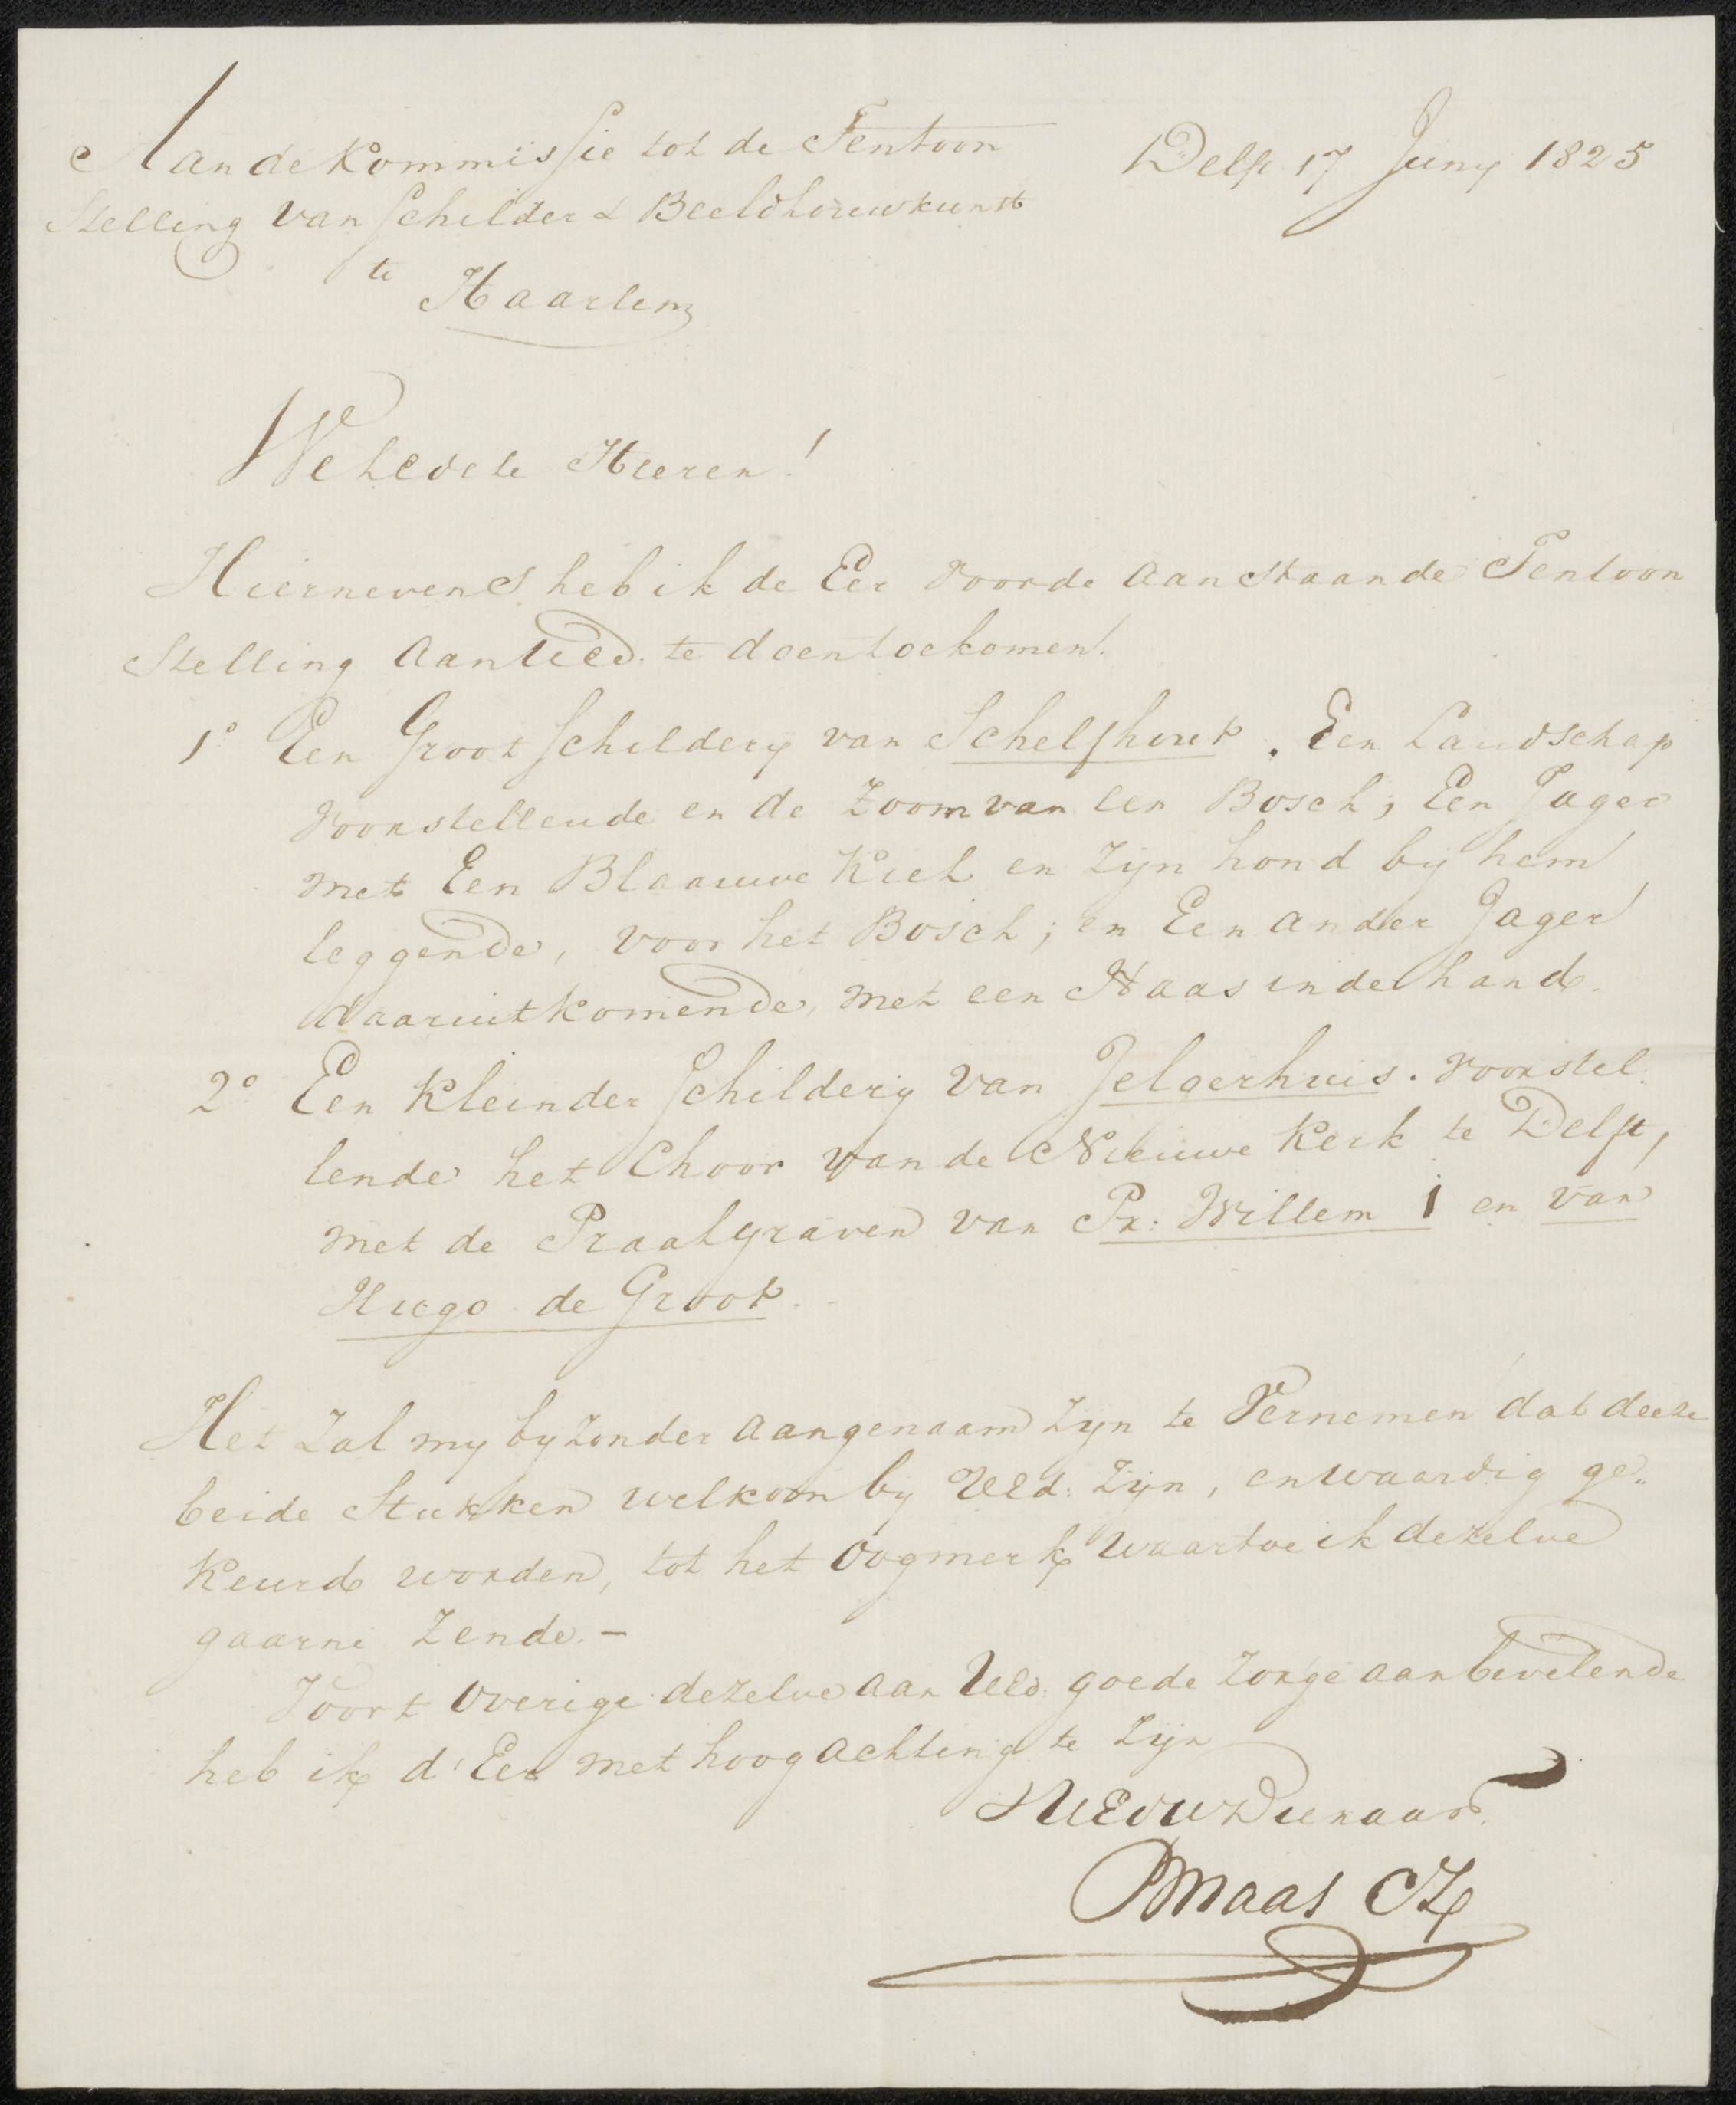 Aan de Kommissie tot de Tentoon
Stelling van Schilder & Beeldhouwkunst
te
Haarlem
Delft 17 Juny 1825
WelEdele Heeren!
Hiernevens heb ik de Eer voor de aanstaande Tentoon
Stelling aan UEd. te doen toekomen.
1º Een Groot Schildery van Schelfhout. Een Landschap
voorstellende en de Zoom van een Bosch; Een Jager
met Een Blaauwe Kiel en zijn hond bij hem
leggende, voor het Bosch; en Een ander Jager
daaruitkomende, met een Haas in de hand.
2º Een Kleinder Schilderij van Jelgerhuis. voorstel
lende het Choor van de Nieuwe Kerk te Delft,
met de Praalgraven van Pr: Willem 1 en van
Hugo de Groot.
Het zal my byzonder aangenaam zijn te Vernemen dat deeze
beide Stukken welkom by UEd: zijn, en waardig ge„
keurd worden, tot het oogmerk waartoe ik dezelve
gaarne zende. –
Voort overige dezelve aan UEd: goede zorge aanbevelende
heb ik d'Eer met hoogachting te zijn
UEd Dienaar
Maas CZ